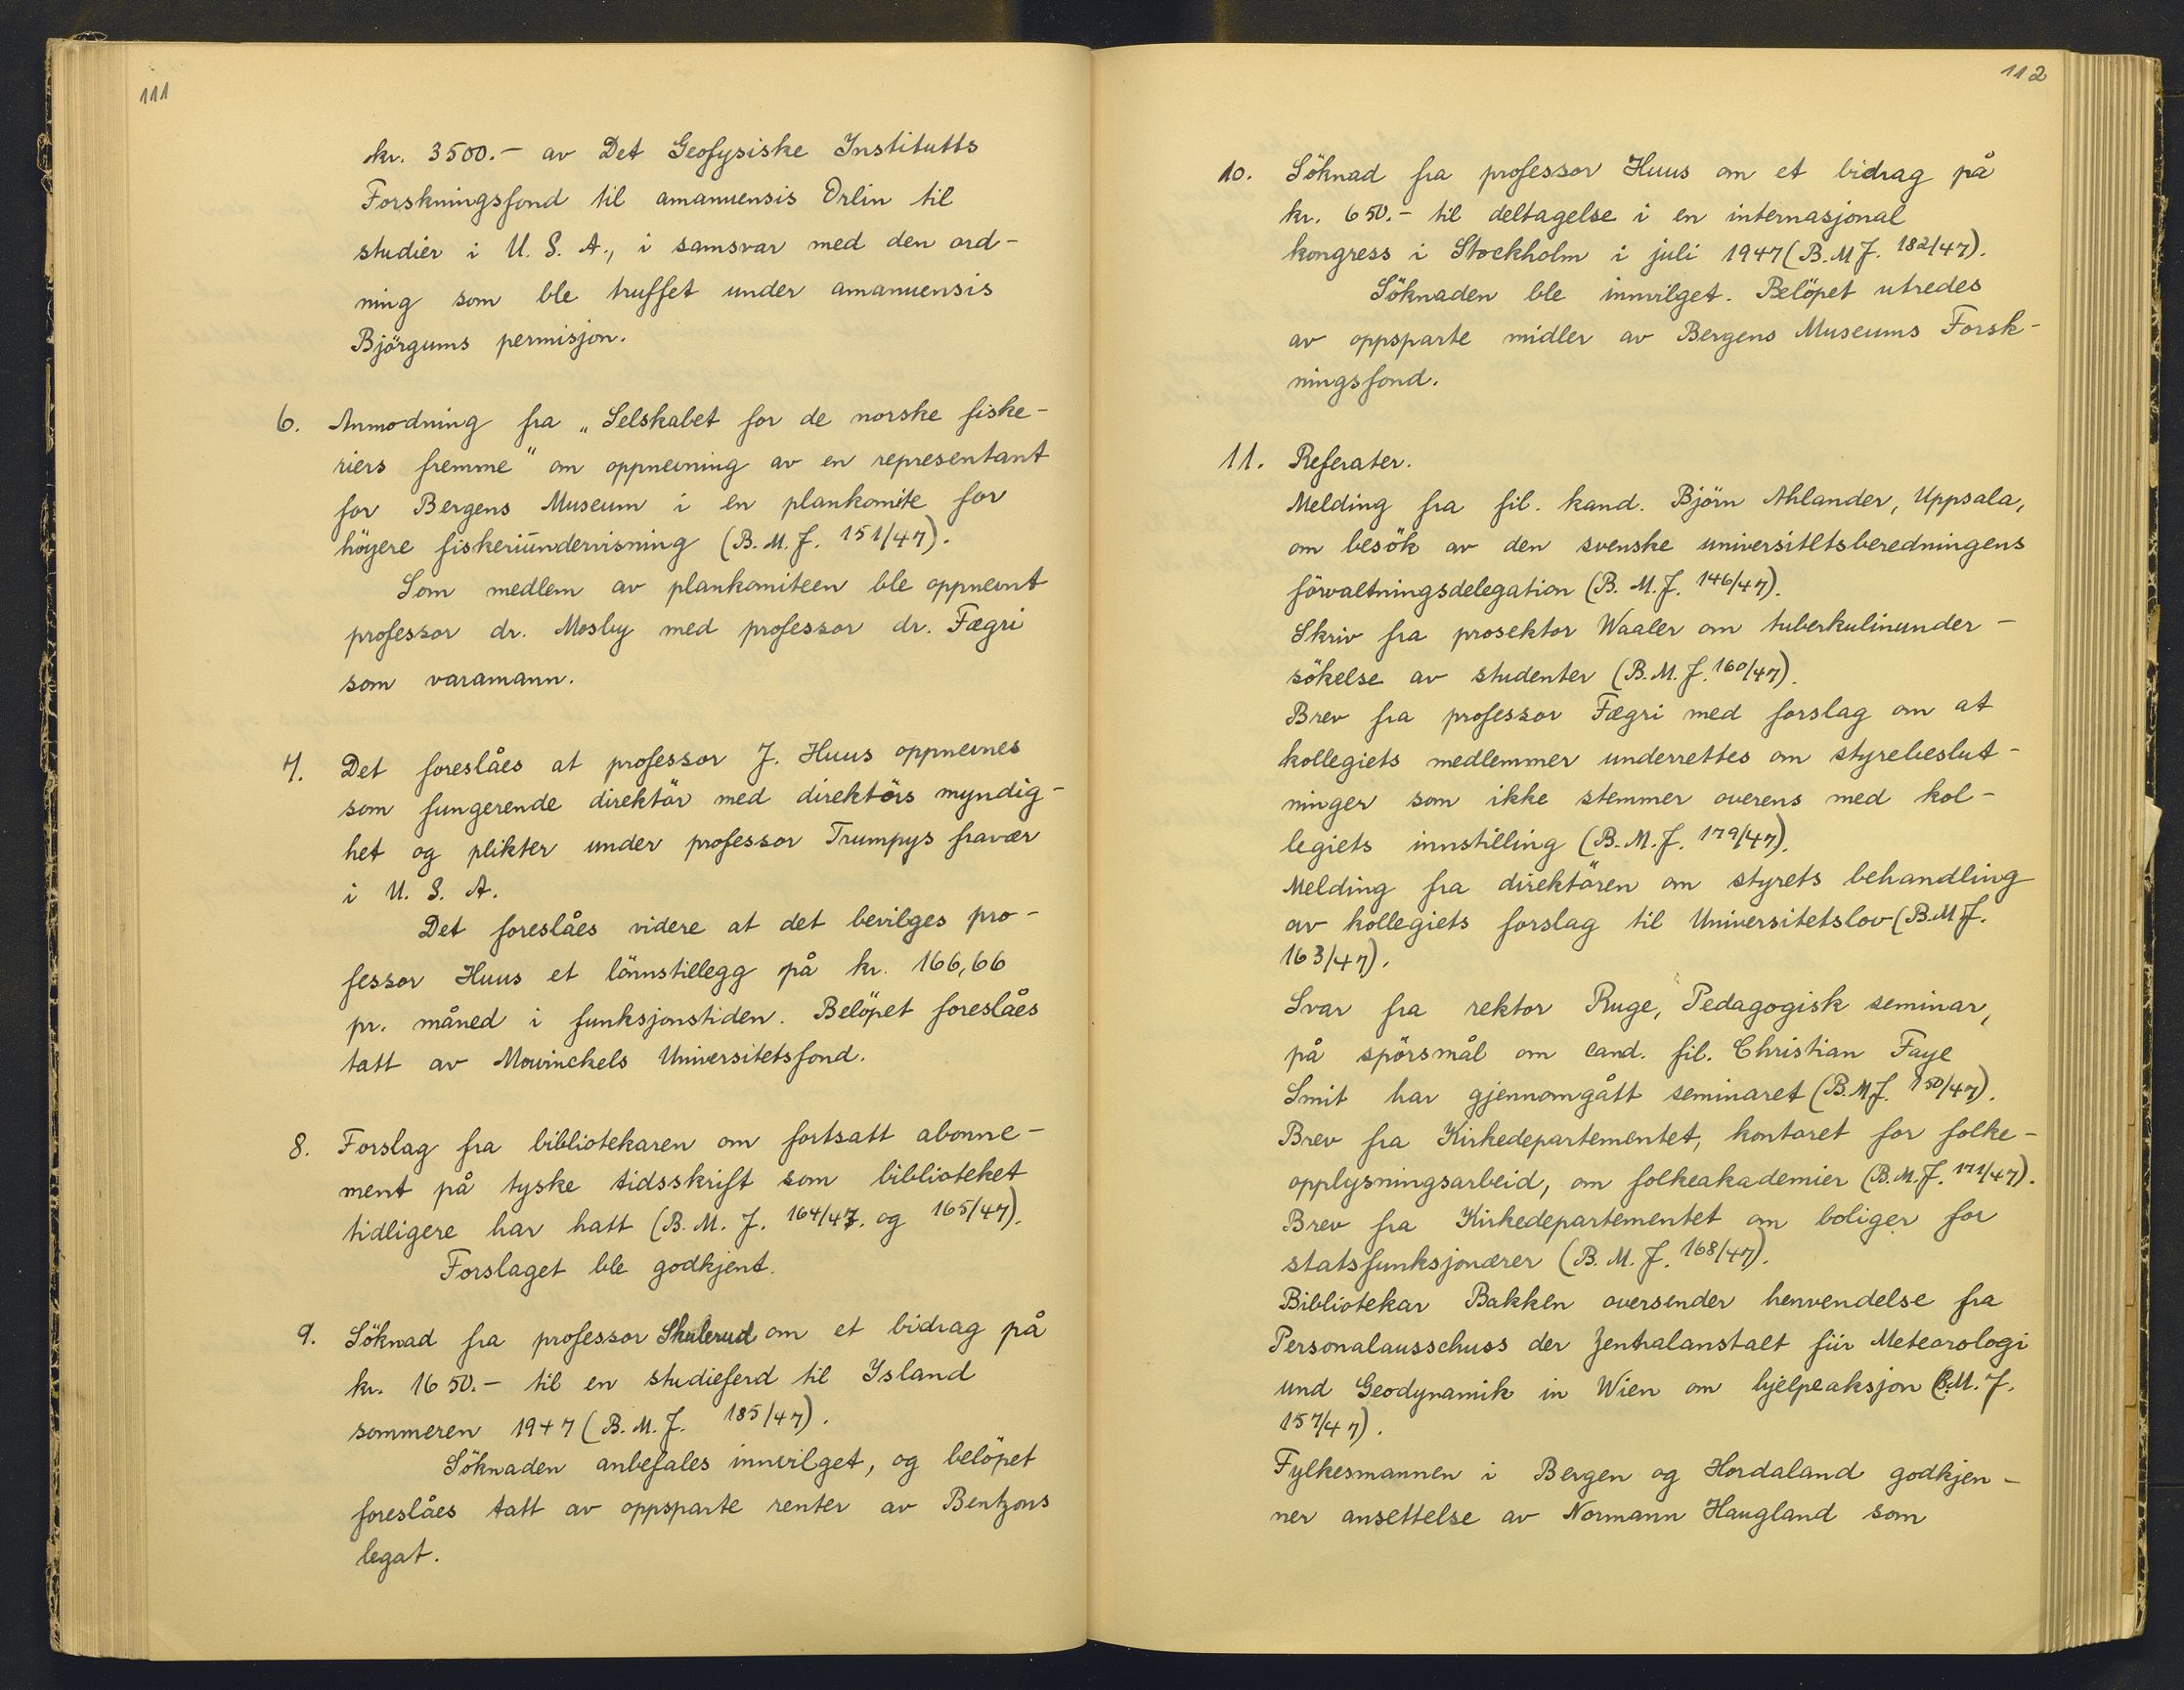 111
kr. 3500.- av Det Geofysiske Institutts
Forskningsfond til amanuensis Orlin til
studier i U. S. A., i samsvar med den ord-
ning som ble truffet under amanuensis
Björgums permisjon.
6. Anmodning fra „Selskabet for de norske fiske-
riers fremme" om oppnevning av en representant
for Bergens Museum i en plankomite for
höyere fiskeriundervisning (B. M. J. 151/47).
Som medlem av plankomiteen ble oppnevnt
professor dr. Mosby med professor dr. Fægri
som varamann.
7. Det foreslåes at professor J. Huus oppnevnes
som fungerende direktör med direktörs myndig-
het og plikter under professor Trumpys fravær
i U. S. A.
Det foreslåes videre at det bevilges pro-
fessor Huus et lönnstillegg på kr. 166,66
pr. måned i funksjonstiden. Belöpet foreslåes
tatt av Mowinckels Universitetsfond.
8. Forslag fra bibliotekaren om fortsatt abonne-
ment på tyske tidsskrift som biblioteket
tidligere har hatt (B. M. J. 164/47. og 165/47).
Forslaget ble godkjent.
9. Söknad fra professor Skulerud om et bidrag på
kr. 1650.- til en studieferd til Island
sommeren 1947 (B. M. J. 185/47).
Söknaden anbefales innvilget, og belöpet
foreslåes tatt av oppsparte renter av Bentzons
legat.
112
10. Söknad fra professor Huus om et bidrag på
kr. 650.- til deltagelse i en internasjonal
kongress i Stockholm i juli 1947 (B. M J. 182/47).
Söknaden ble innvilget. Belöpet utredes
av oppsparte midler av Bergens Museums Forsk-
ningsfond.
11. Referater.
Melding fra fil. kand. Björn Ahlander, Uppsala,
om besök av den svenske universitetsberedningens
förvaltningsdelegation (B. M. J. 146/47).
Skriv fra prosektor Waaler om tuberkulinunder-
sökelse av studenter (B. M. J. 160/47).
Brev fra professor Fægri med forslag om at
kollegiets medlemmer underrettes om styrebeslut-
ninger som ikke stemmer overens med kol-
legiets innstilling (B. M. J. 179/47).
Melding fra direktören om styrets behandling
av kollegiets forslag til Universitetslov (B. M J.
163/47).
Svar fra rektor Ruge, Pedagogisk seminar,
på spörsmål om cand. fil. Christian Faye
Smit har gjennomgått seminaret (B. M. J. 150/47).
Brev fra Kirkedepartementet, kontoret for folke-
opplysningsarbeid, om folkeakademier (B. M. J. 171/47).
Brev fra Kirkedepartementet om boliger for
statsfunksjonærer (B. M. J. 168/47).
Bibliotekar Bakken oversender henvendelse fra
Personalausschuss der Zentralanstalt für Meteorologi
und Geodynamik in Wien om hjelpeaksjon (B. M. J.
157/47).
Fylkesmannen i Bergen og Hordaland godkjen-
ner ansettelse av Normann Haugland som